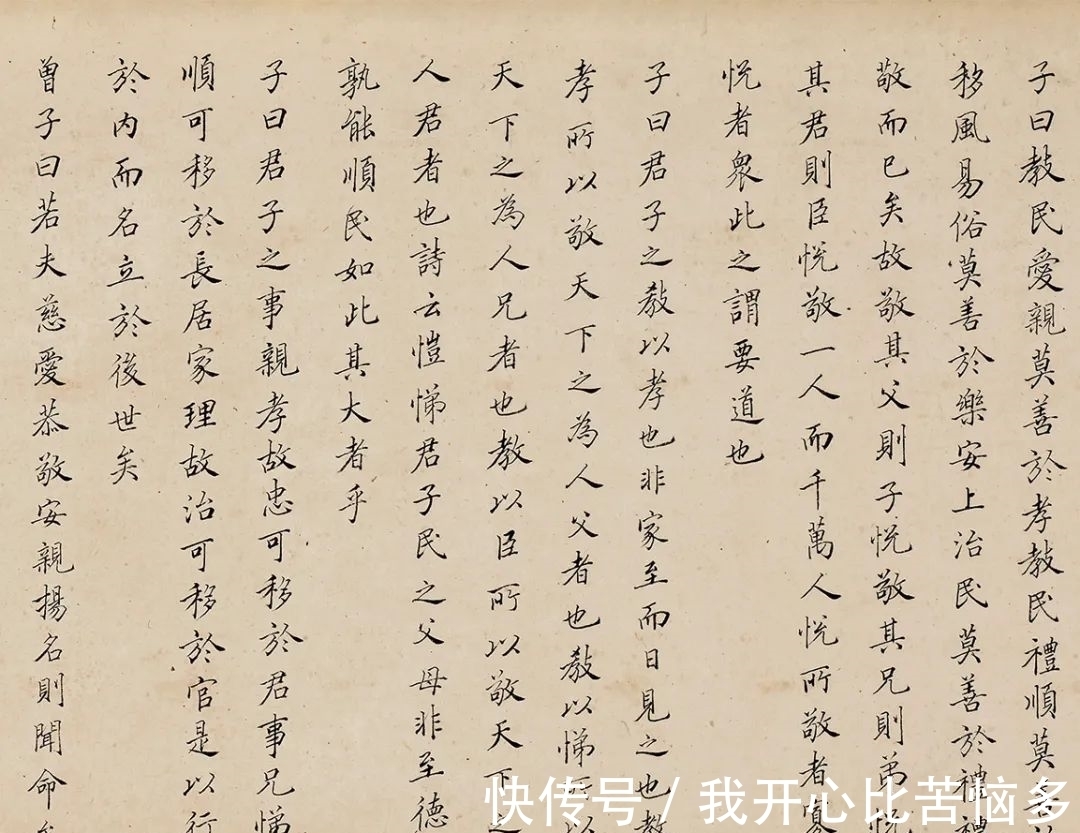 子曰教民愛親莫善於孝教民禮順莫善
移風易俗莫善於樂安上治民莫善於禮禮
敬而已矣故敬其父則子悅敬其兄則弟悅
其君則臣悅敬一人而千萬人悅所敬者寡
悅者眾此之謂要道也
子曰君子之教以孝也非家至而日見之也教
孝所以敬天下之為人父者也教以悌所以
天下之為人兄者也教以臣所以敬天下之
人君者也詩云愷悌君子民之父母非至德
孰能順民如此其大者乎
子曰君子之事親孝故忠可移於君事兄悌
順可移於長居家理故治可移於官是以行
於內而名立於後世矣
曾子曰若夫慈愛恭敬安親揚名則聞命
快传号/我开心比苦恼多